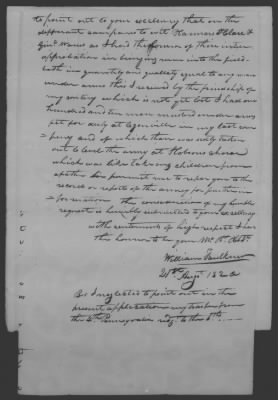 to point out to your excellency that on the
different campains to wit Harmars St Clare &
Genl Wains as I had the honour of their
approbation in bringing men into the field
both in quantity and quality equal to any man
under arms this I received by the friendship of
my
hundred and ten men mustered under arms
pet for duty at in my last com
=pany and of which there was only taken
out to level the army at Hobsons choise
which was like taking children from
a father permit me to repair you to the
records or reports of the army for further in
=formation the consideration of my humble
request is humbly submitted to your excellency
with sentiments of high respect I have
the honour to be your Mt
William Faulkner
21st Augt 1820
to point out in the
present application my transfer from
the 4th Pennsylvania regt to the